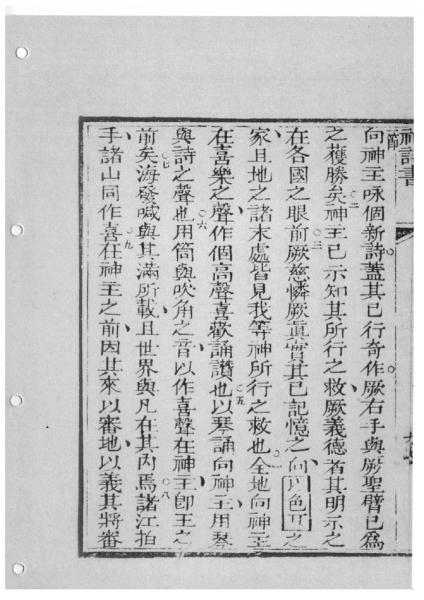 神詩書
向神主咏個新詩蓋其已行奇作厥右手與厥聖臂已爲
之獲勝矣○二神主已示知其所行之救厥義德者其明示之
在各國之眼前○三厥慈憐厥眞實其已記憶之向以色耳之
家且地之諸末處皆見我等神所行之救也○全地向神主
在喜樂之聲作個高聲喜歡誦讚也○五以琴誦向神主用琴
與詩之聲也○六用筒與吹角之音以作喜聲在神主卽王之
前矣○七海發喊與其滿所載且世界與凡在其內焉○八諸江拍
手諸山同作喜○九在神主之前因其來以審地以義其將審